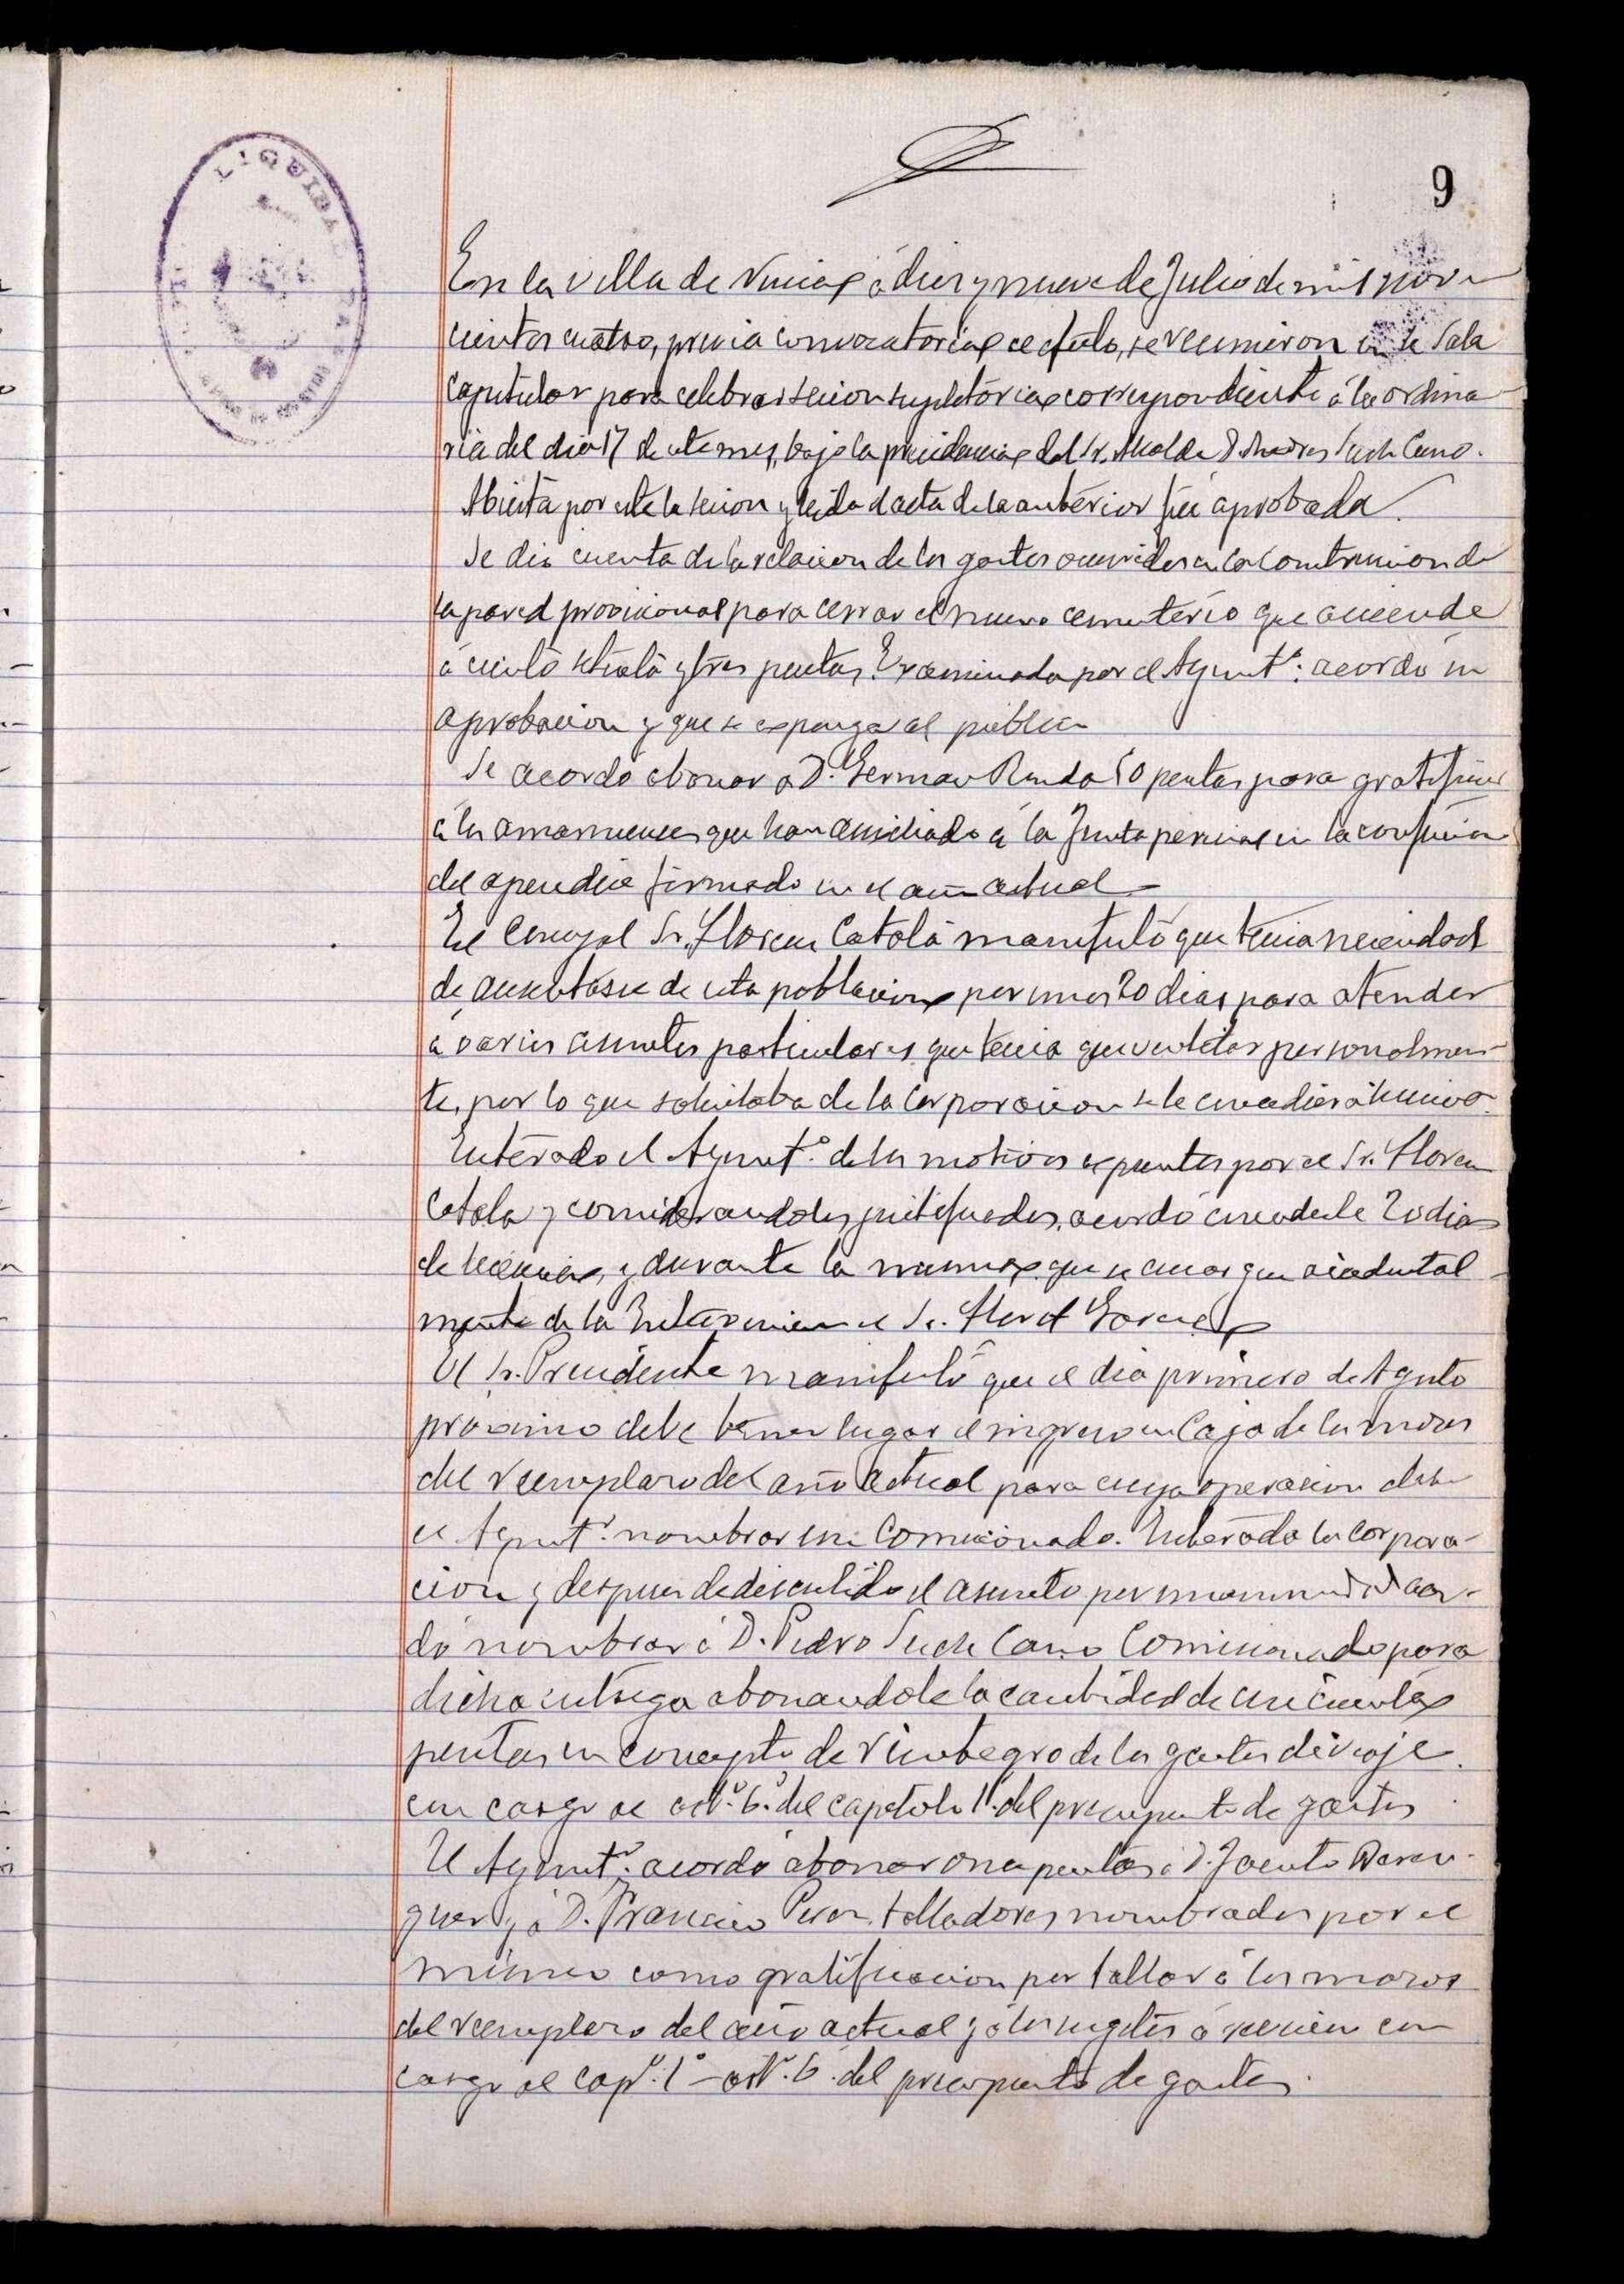 LIQUIDA
9
En la villa de Nucia á diez y nueve de Julio de mil nove
cientos cuatro, previa convocatoria al efecto, se reunieron en la Sala
Capitular para celebrar sesion supletoria correspondiente á la ordina
ria del dia 17 de este mes, bajo la presidencia del Sr. Alcalde D. Andres Such Cano.
Abierta por este la sesion y leida el acta de la anterior fué aprobada.
Se dió cuenta de la relacion de los gastos ocurridos en la Construcion de
la pared provisional para cerrar el nuevo cementerio que asciende
á ciento setenta y tres pesetas. Examinada por el Ayunt.º acordó su
aprobacion y que se exponga al público
Se acordó abonar a D. German 50 pesetas para gratificar
á los amanuenses que han ausiliado á la Junta pericial en la confeccion
del apendice firmado en el año actual
El Concejal Sr. Llorens Catalá manifestó que tenia necesidad
de ausentarse de esta poblacion por unos 20 dias para atender
á varios asuntos particulares que tenia que ventilar personalmen-
te, por lo que solicitaba de la Corporacion se le concediera licencia.
Enterado el Ayunt.º de los motivos expuestos por el Sr. Llorens
Catala y considerandolos justificados, acordó concederle 20 dias
de licencia, y durante la misma que se encargue accidental
mente de la Intervencion el Sr. Lloret Garcia
El Sr. Presidente manifestó que el dia primero de Agosto
proximo debe tener lugar el ingreso en Caja de los mozos
del reemplazo del año actual para cuya operacion debe
el Ayunt.º nombrar un Comisionado. Enterada la Corpora-
cion y despues de discutido el asunto por unanimidad acor-
dó nombrar á D. Pedro Such Cano Comisionado para
dicha entrega abonandole la cantidad de cincuenta
pesetas en concepto de reintegro de los gastos de viaje
con cargo al art.º 6.º del capitulo 1.º del presupuesto de gastos
El Ayunt.º acordó abonar once pesetas á D. Jacinto Beren-
guer y á D. Francisco Perez, talladores nombrados por el
mismo como gratificacion por tallar á los mozos
del reemplazo del año actual y á los sugetos á revision con
cargo al cap.º 1.º - art.º 6.º del presupuesto de gastos.